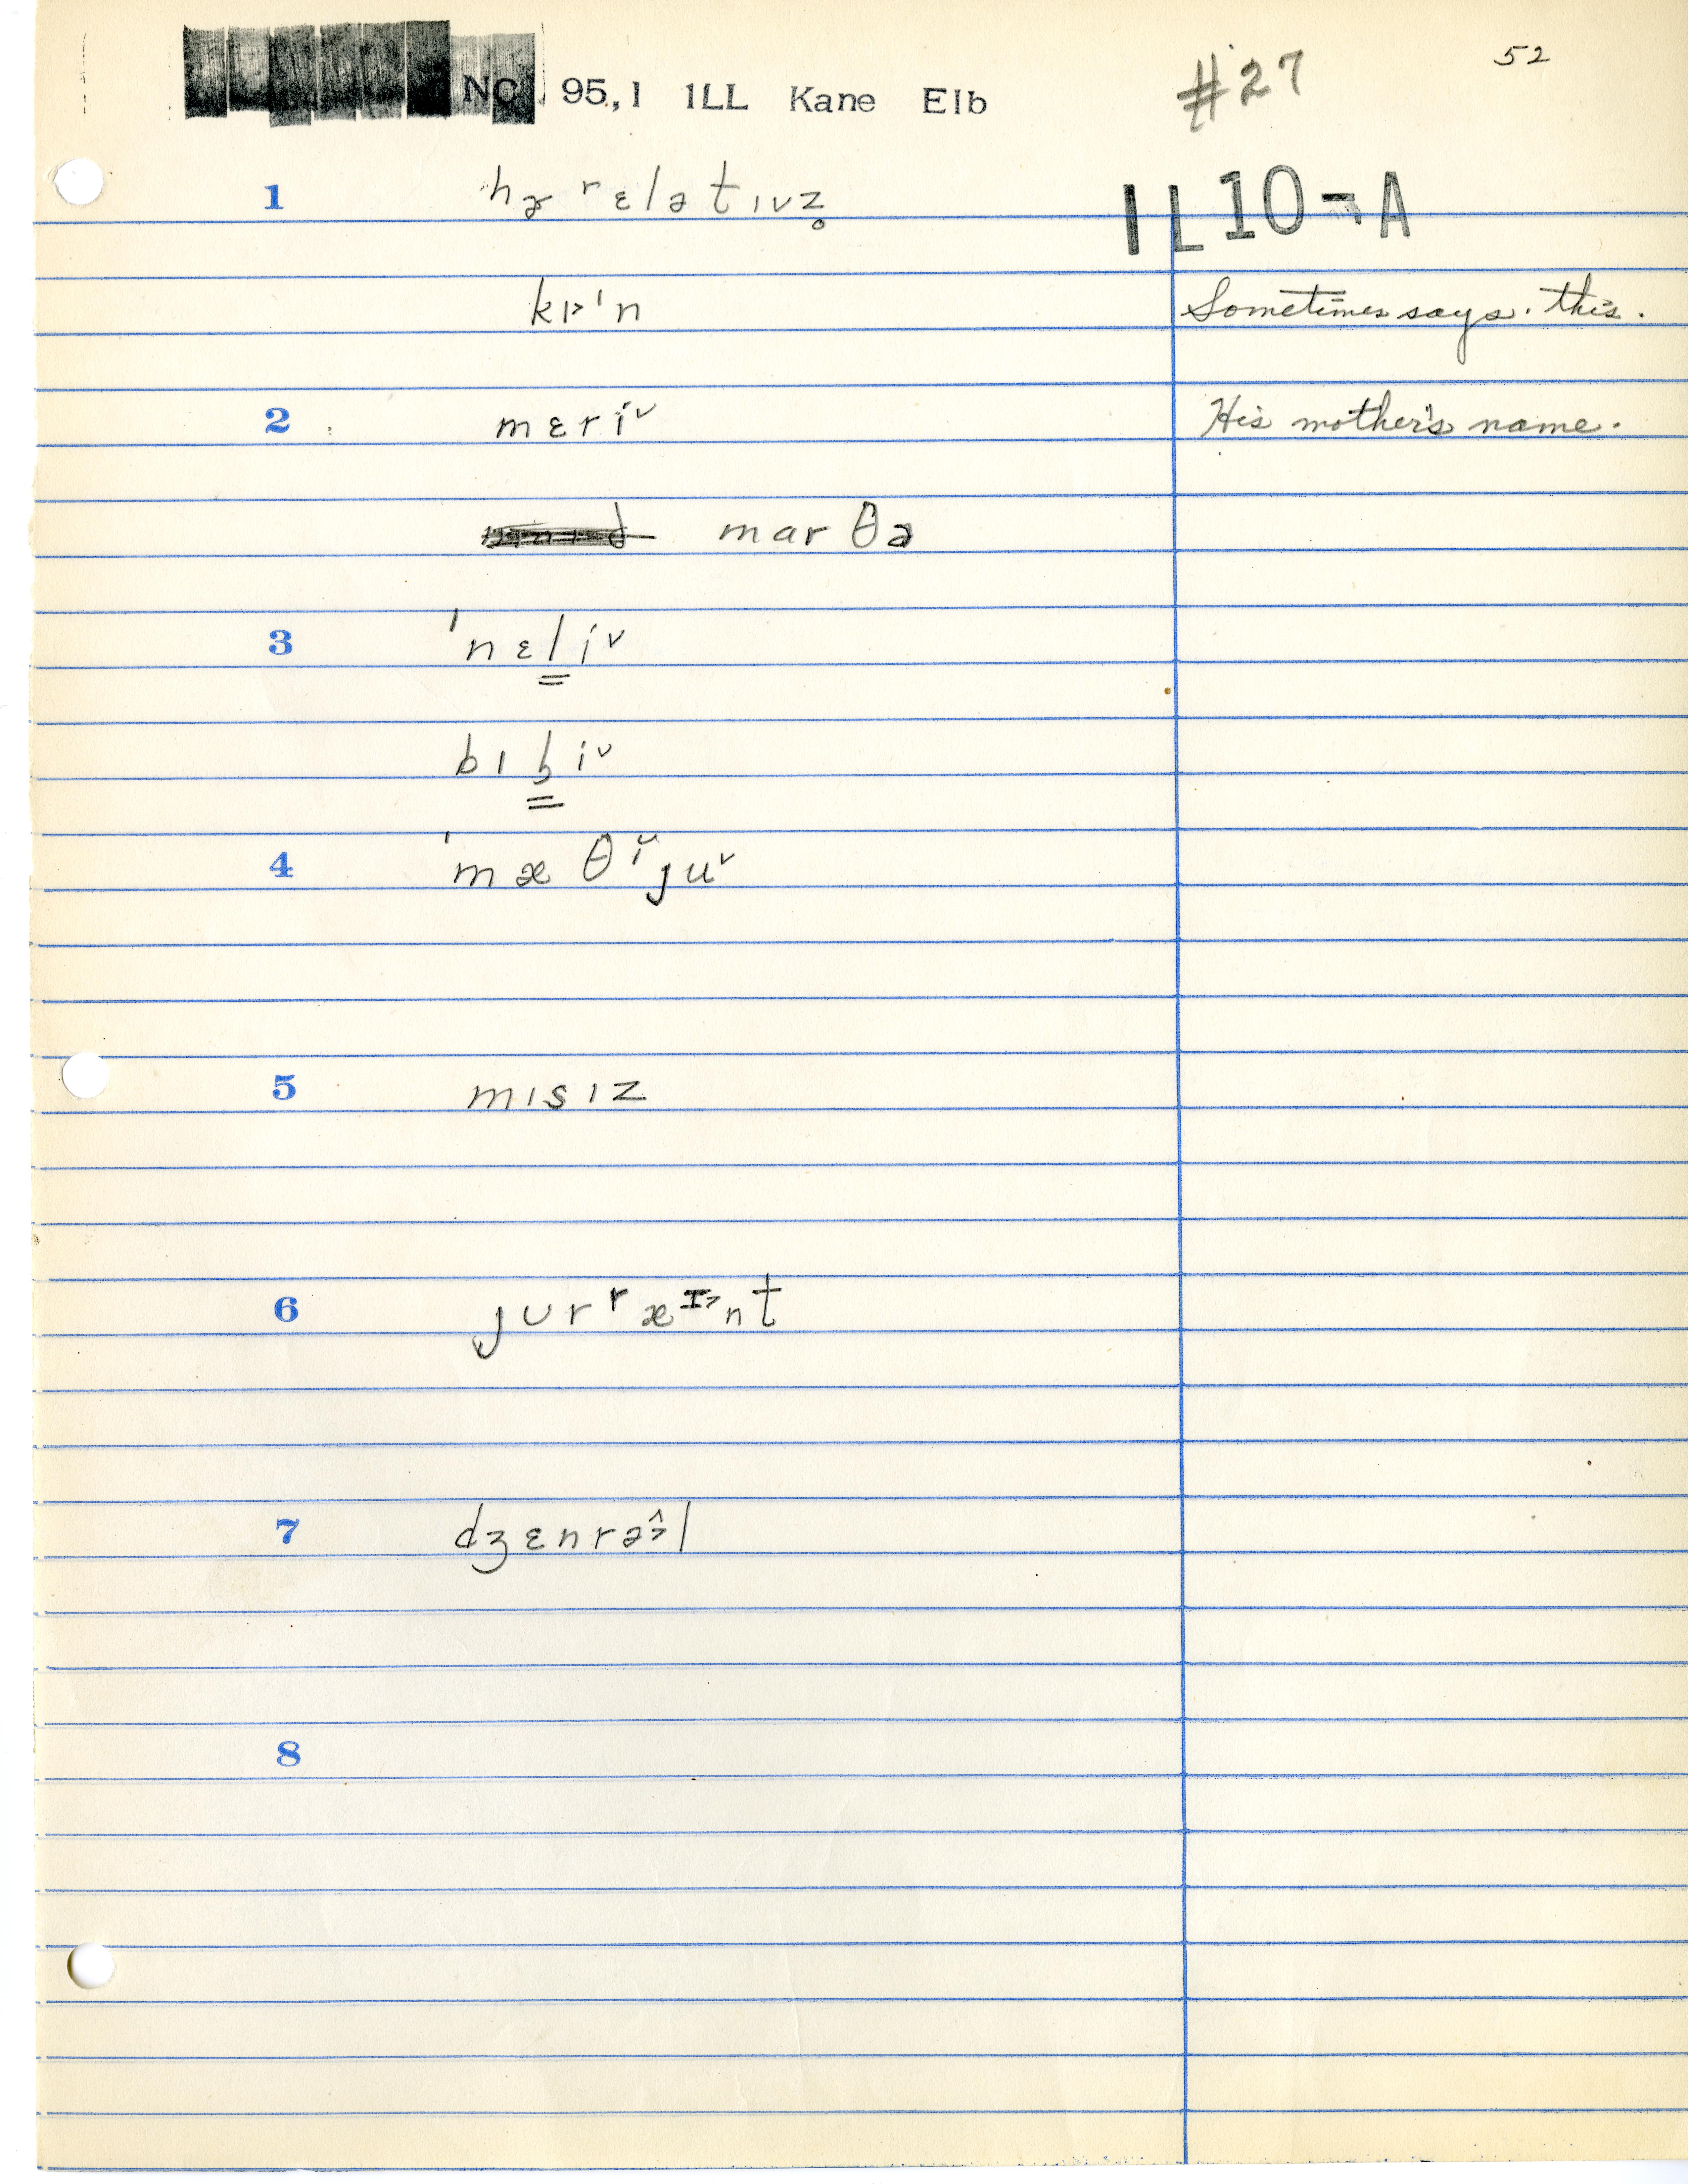 NC 95,1 ILL Kane Elb #27 52
IL10-A
1 hɚ rɛlətɪvz̥
kɪ˃'n Sometimes says this.
2 mɛriˇ His mother's name.
marθə
3 'nɛl̳iˇ
bɪl̳iˇ
4 'mæθiˇjuˇ
5 mɪsɪz
6 jʊrræɪ˃nt
7 dʒɛnrəl
8